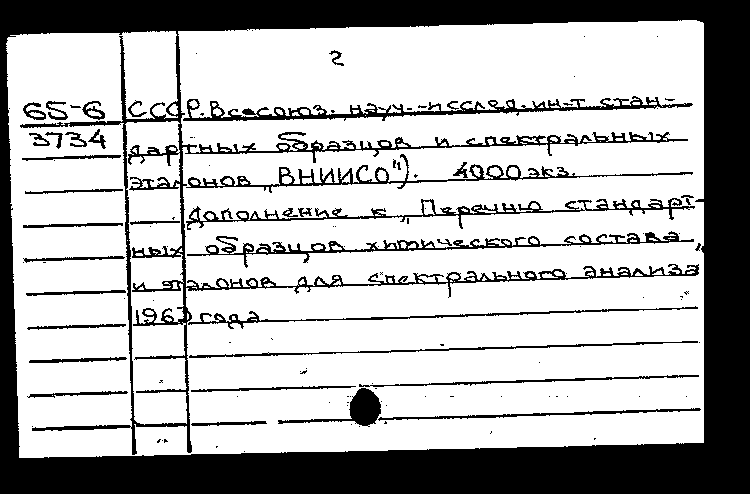 2
65-6 СССР. Всесоюз. науч.-исслед. ин-т стан-
3734 дартных образцов и спектральных
эталонов „ВНИИСО"). 4000 экз.
Дополнение к „Перечню стандарт-
ных образцов химического состава
и эталонов для спектрального анализа"
1963 года